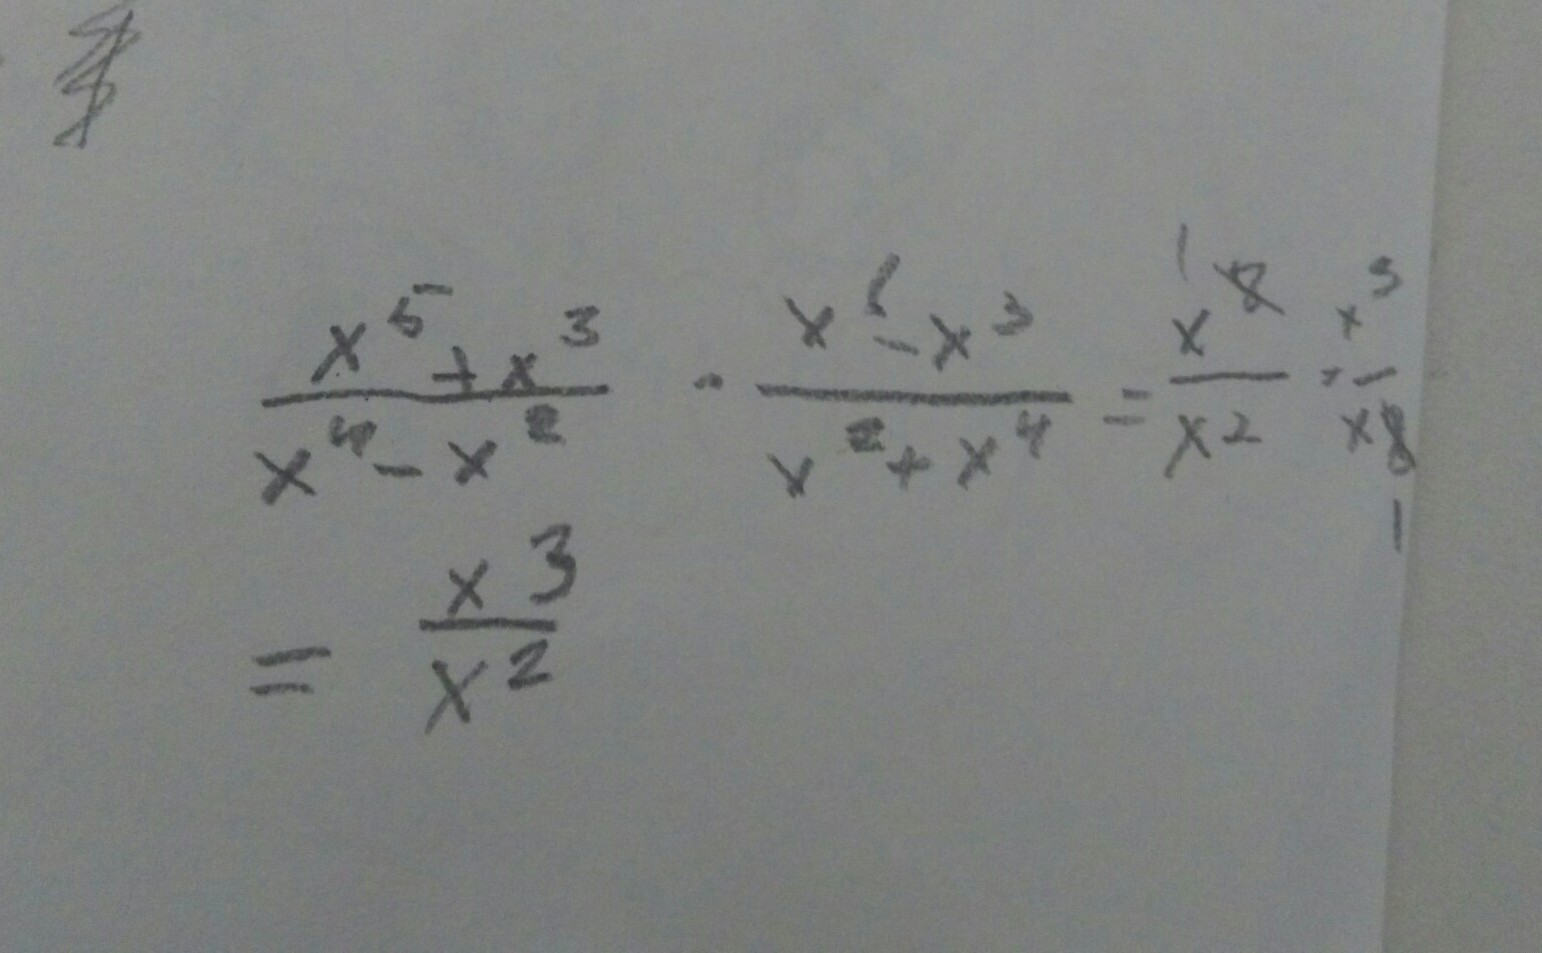 x⁵ + x³ / x⁴ - x² · x⁶ - x³ / x² + x⁴ = x⁸ / x² · x³ / x⁸
1
1
= x³ / x²